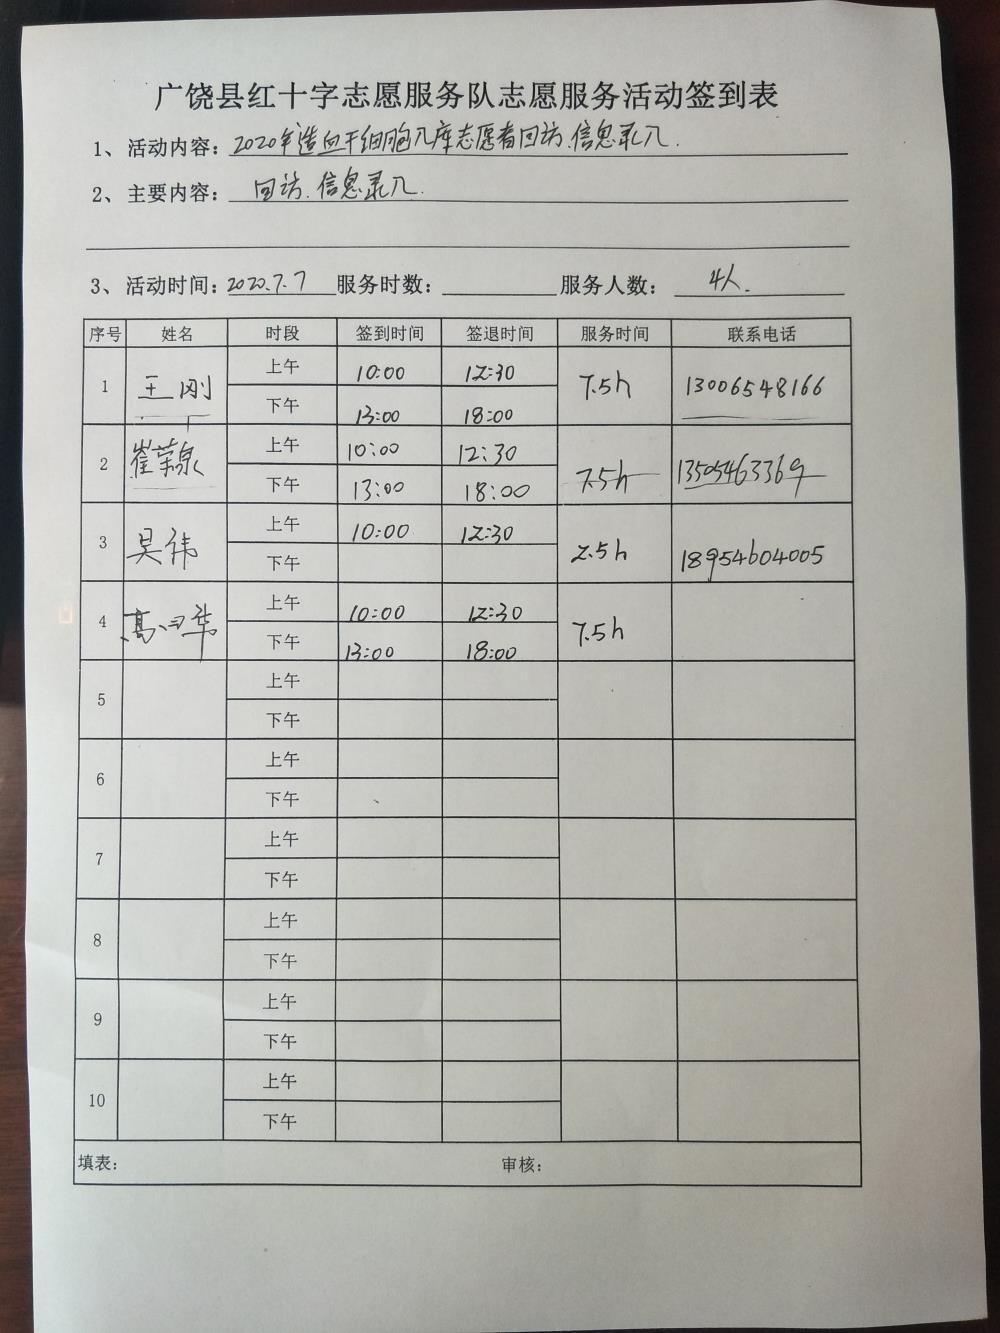 广饶县红十字志愿服务队志愿服务活动签到表
1、活动内容：2020年造血干细胞入库志愿者回访、信息录入.
2、主要内容：回访、信息录入.
3、活动时间：2020.7.7 服务时数： 服务人数：4人.
序号 姓名 时段 签到时间 签退时间 服务时间 联系电话
1 王刚 上午 10:00 12:30 7.5h 13006548166
下午 13:00 18:00
2 崔荣泉 上午 10:00 12:30 7.5h 13505463369
下午 13:00 18:00
3 吴祎 上午 10:00 12:30 2.5h 18954604005
下午
4 高 华 上午 10:00 12:30 7.5h
下午 13:00 18:00
5 上午
下午
6 上午
下午
7 上午
下午
8 上午
下午
9 上午
下午
10 上午
下午
填表： 审核：